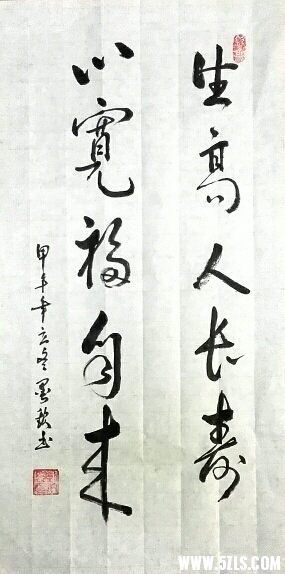 生高人长寿
心宽福自来
甲午年立冬墨秋书
WWW.5ZLS.COM